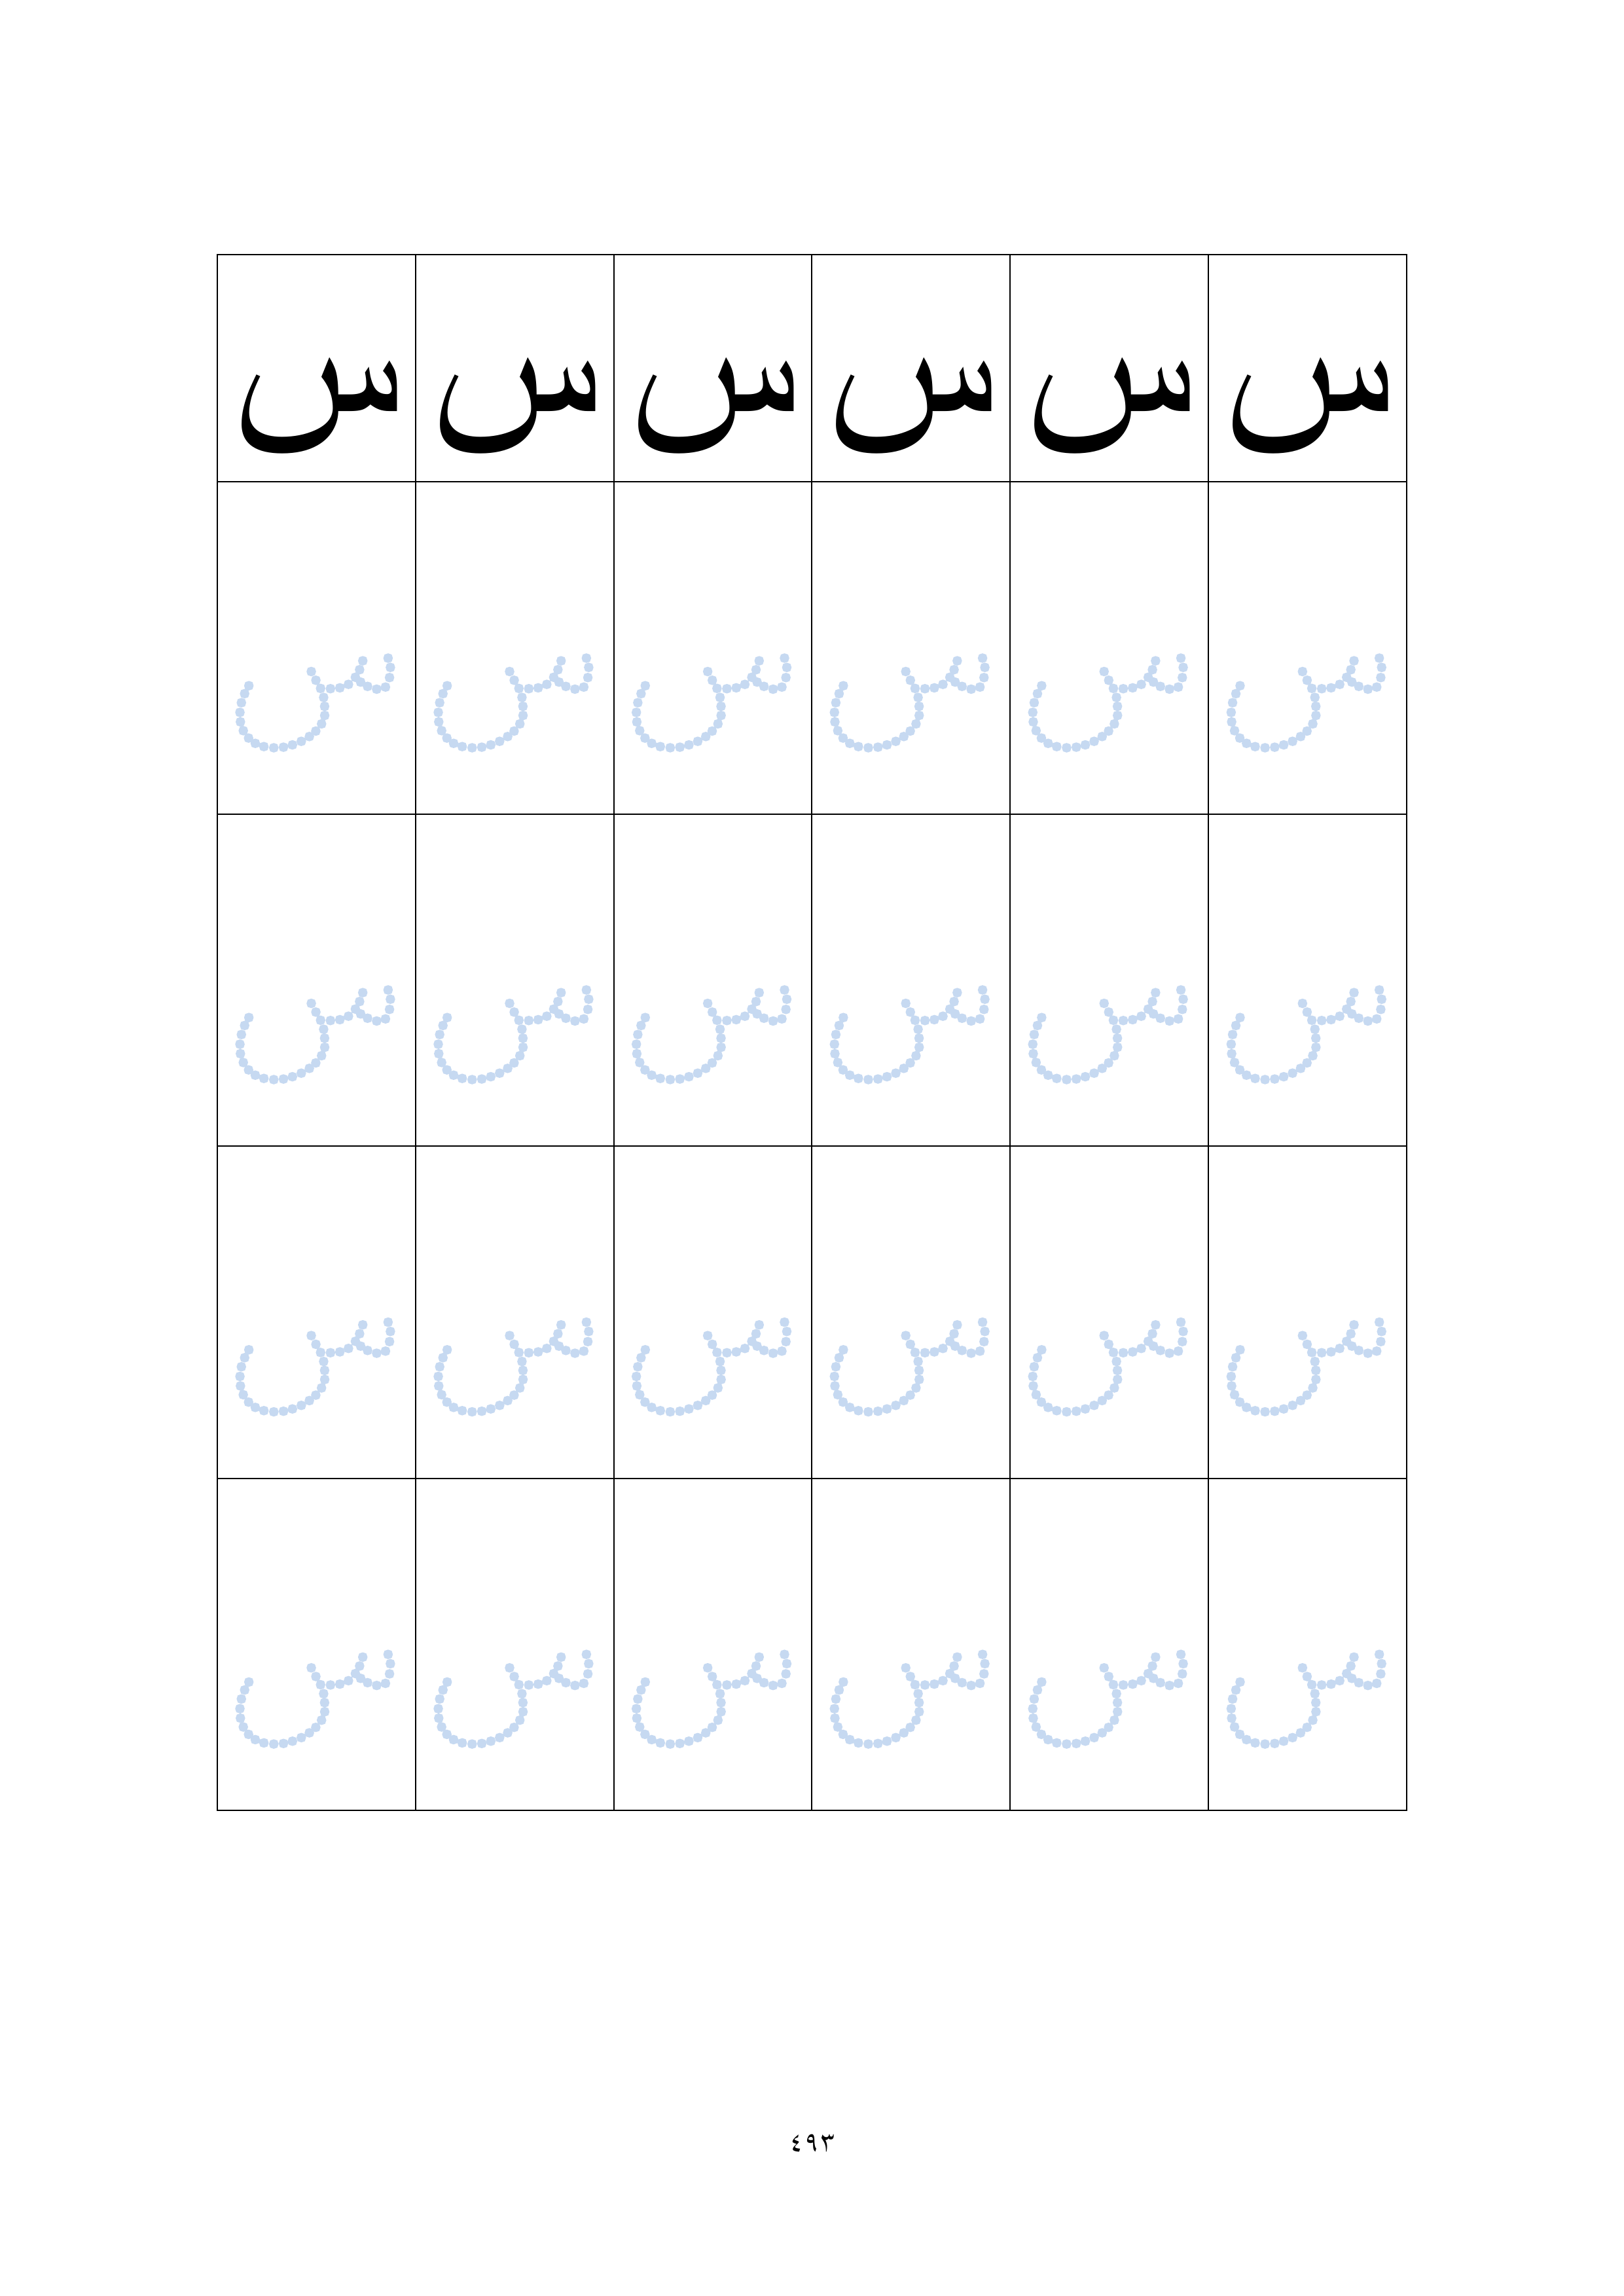 س س س س س س
س س س س س س
س س س س س س
س س س س س س
س س س س س س
٤٩٣